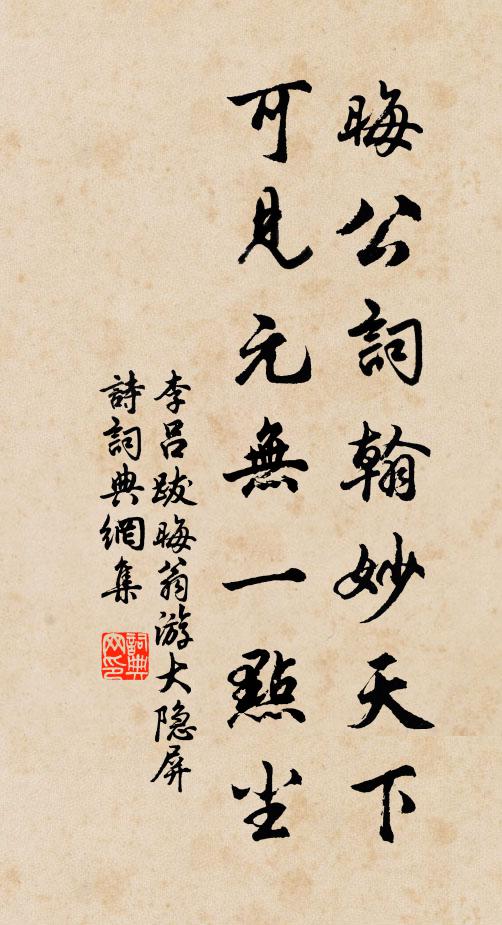 晦公詞翰妙天下
可見元無一點尘
李吕跋晦翁游大隐屏
詩詞典網集
詞典
网印